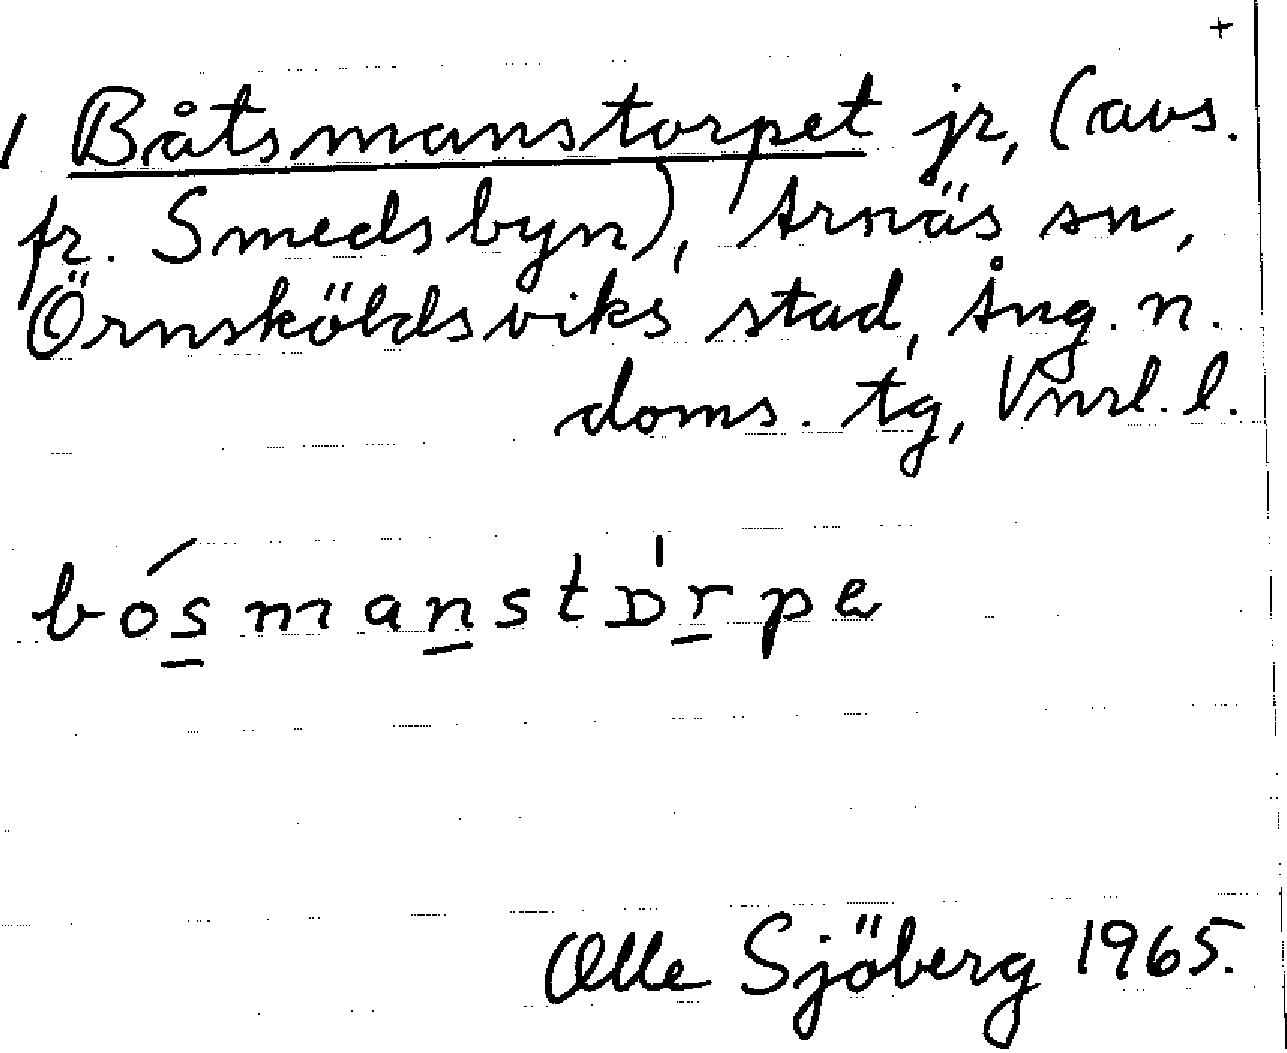 +
1 Båtsmanstorpet jr, (avs.
fr. Smedsbyn), Arnäs sn,
Örnsköldsviks stad, Ång. n.
doms. tg, Vnrl. l.
bósmanstᴅ'rpe
Olle Sjöberg 1965.